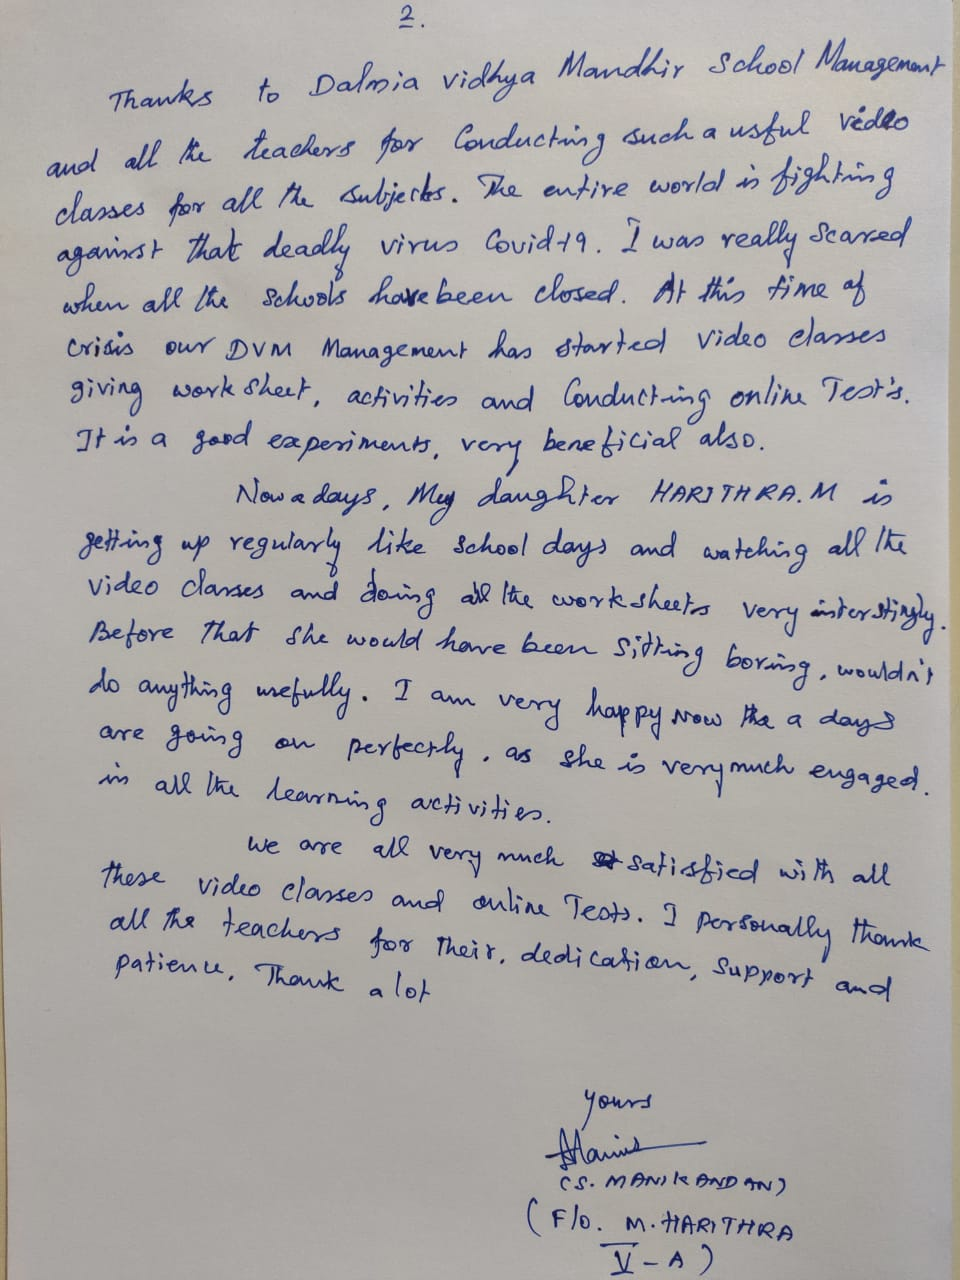 2.
Thanks to Dalmia Vidhya Mandhir School Management
and all the teachers for Conducting such a usful video
classes for all the subjects. The entire world is fighting
against that deadly virus Covid-19. I was really Scared
when all the schools have been closed. At this time of
crisis our DVM Management has started video classes
giving work sheet, activities and Conducting online Test's.
It is a good experiments, very beneficial also.
Now a days, My daughter HARITHRA.M is
getting up regularly like school days and watching all the
video classes and doing all the work sheets very interstingly.
Before that she would have been sitting boring, wouldn't
do anything usefully. I am very happy Now the a days
are going on perfectly, as she is very much engaged.
in all the learning activities.
We are all very much satisfied with all
these video classes and online Tests. I personally thank
all the teachers for their, dedication, support and
patience, Thank a lot
yours
(S. MANIKANDAN)
(F/o. M.HARITHRA
V-A)